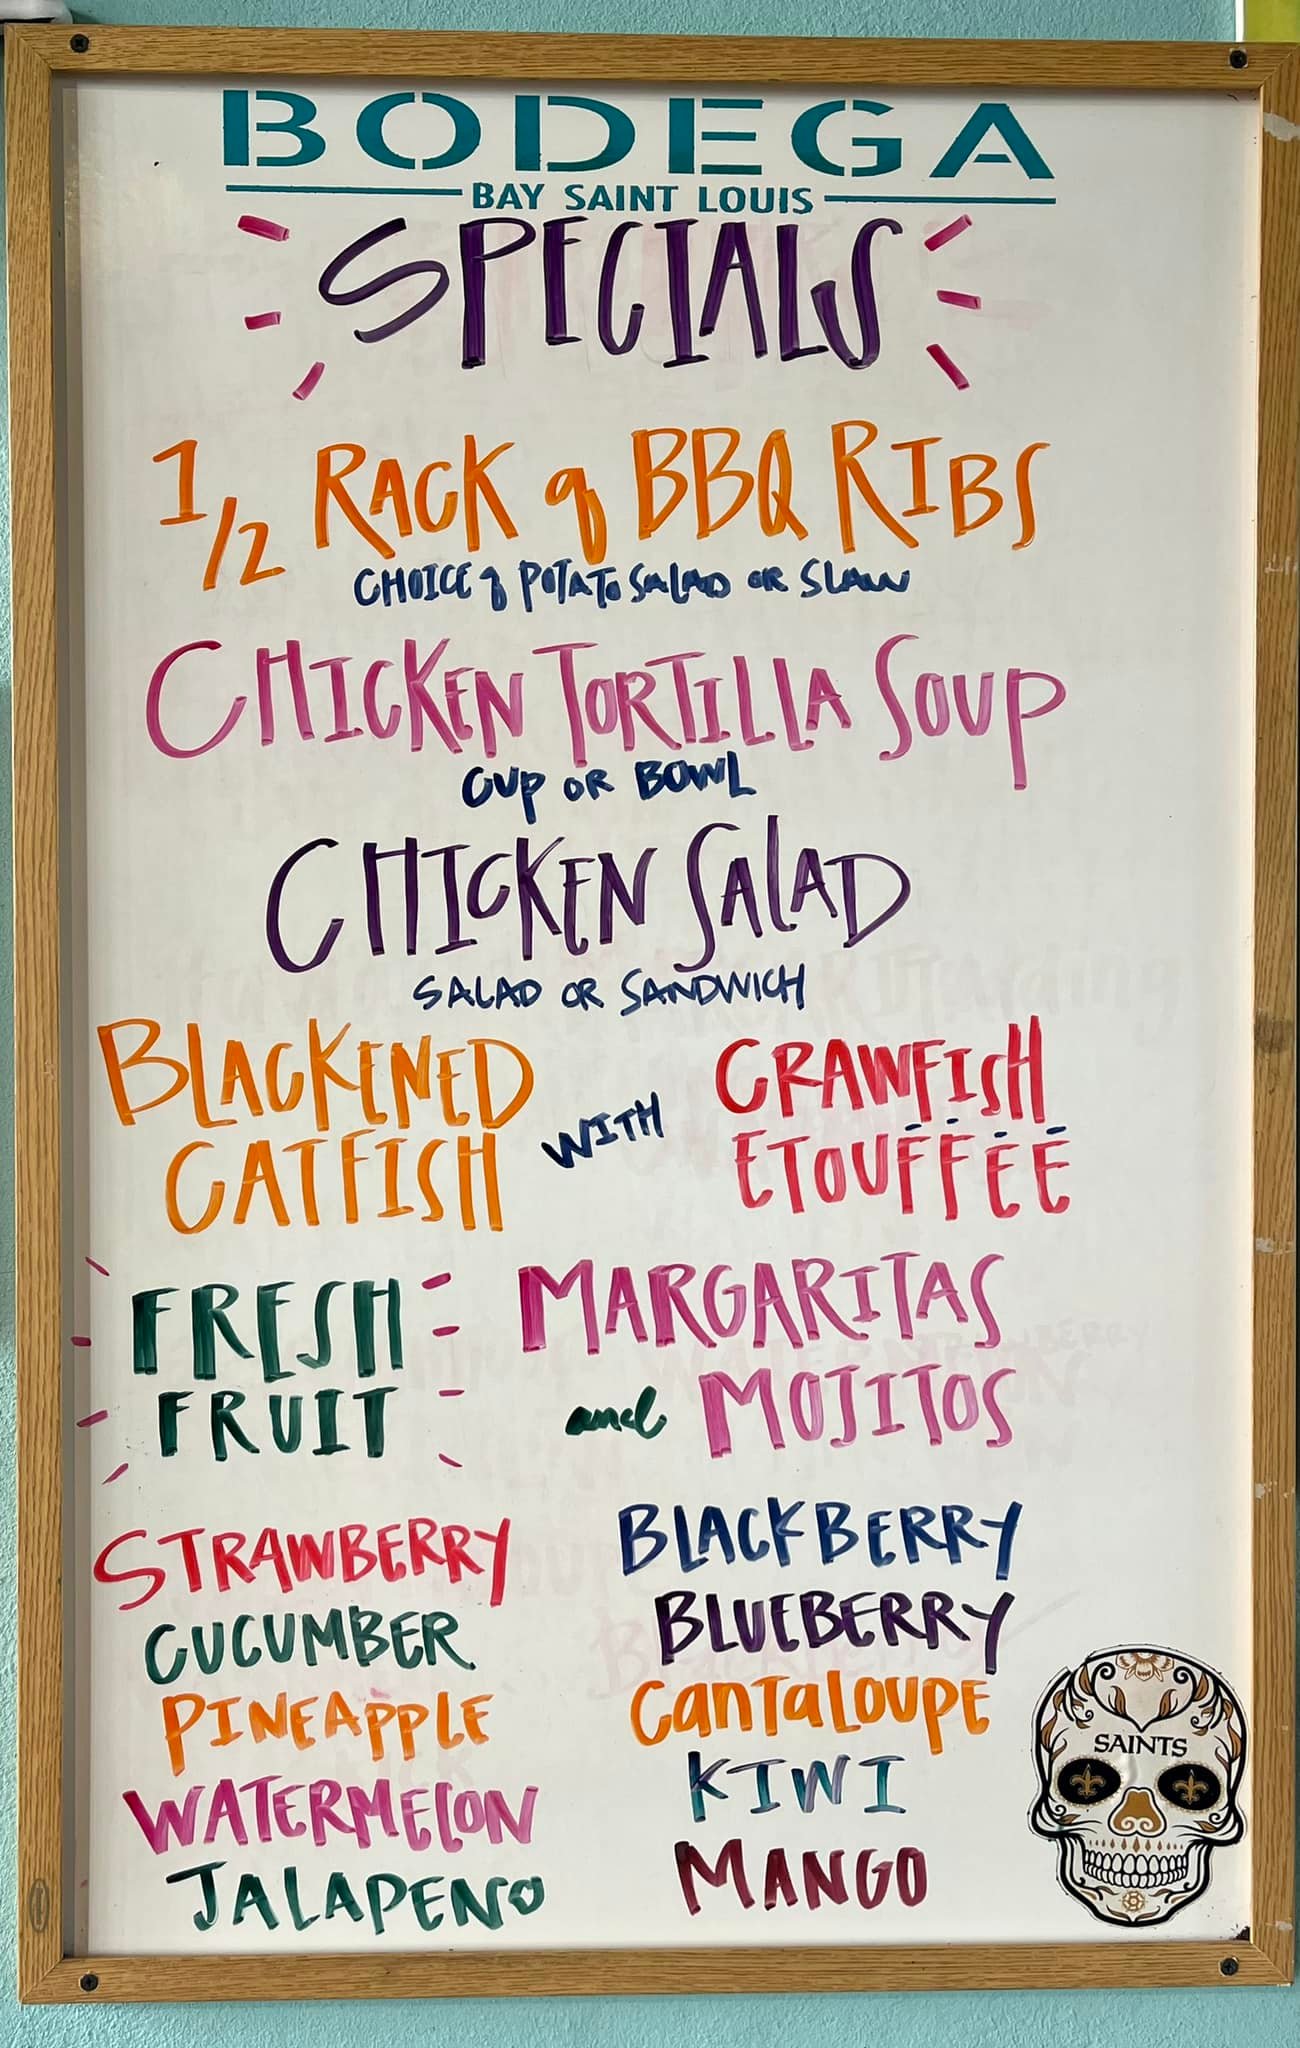 BODEGA
BAY SAINT LOUIS
SPECIALS
1/2 RACK of BBQ RIBS
CHOICE of POTATO SALAD OR SLAW
CHICKEN TORTILLA SOUP
CUP OR BOWL
CHICKEN SALAD
SALAD OR SANDWICH
BLACKENED CATFISH WITH CRAWFISH ETOUḞḞĖĖ
FRESH FRUIT MARGARITAS and MOJITOS
STRAWBERRY
CUCUMBER
PINEAPPLE
WATERMELON
JALAPENO
BLACKBERRY
BLUEBERRY
CANTALOUPE
KIWI
MANGO
SAINTS